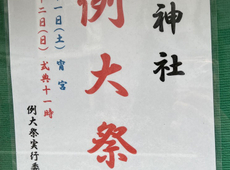 神社
例大祭
一日(土) 宵宮
十二日(日) 式典十一時
例大祭実行委